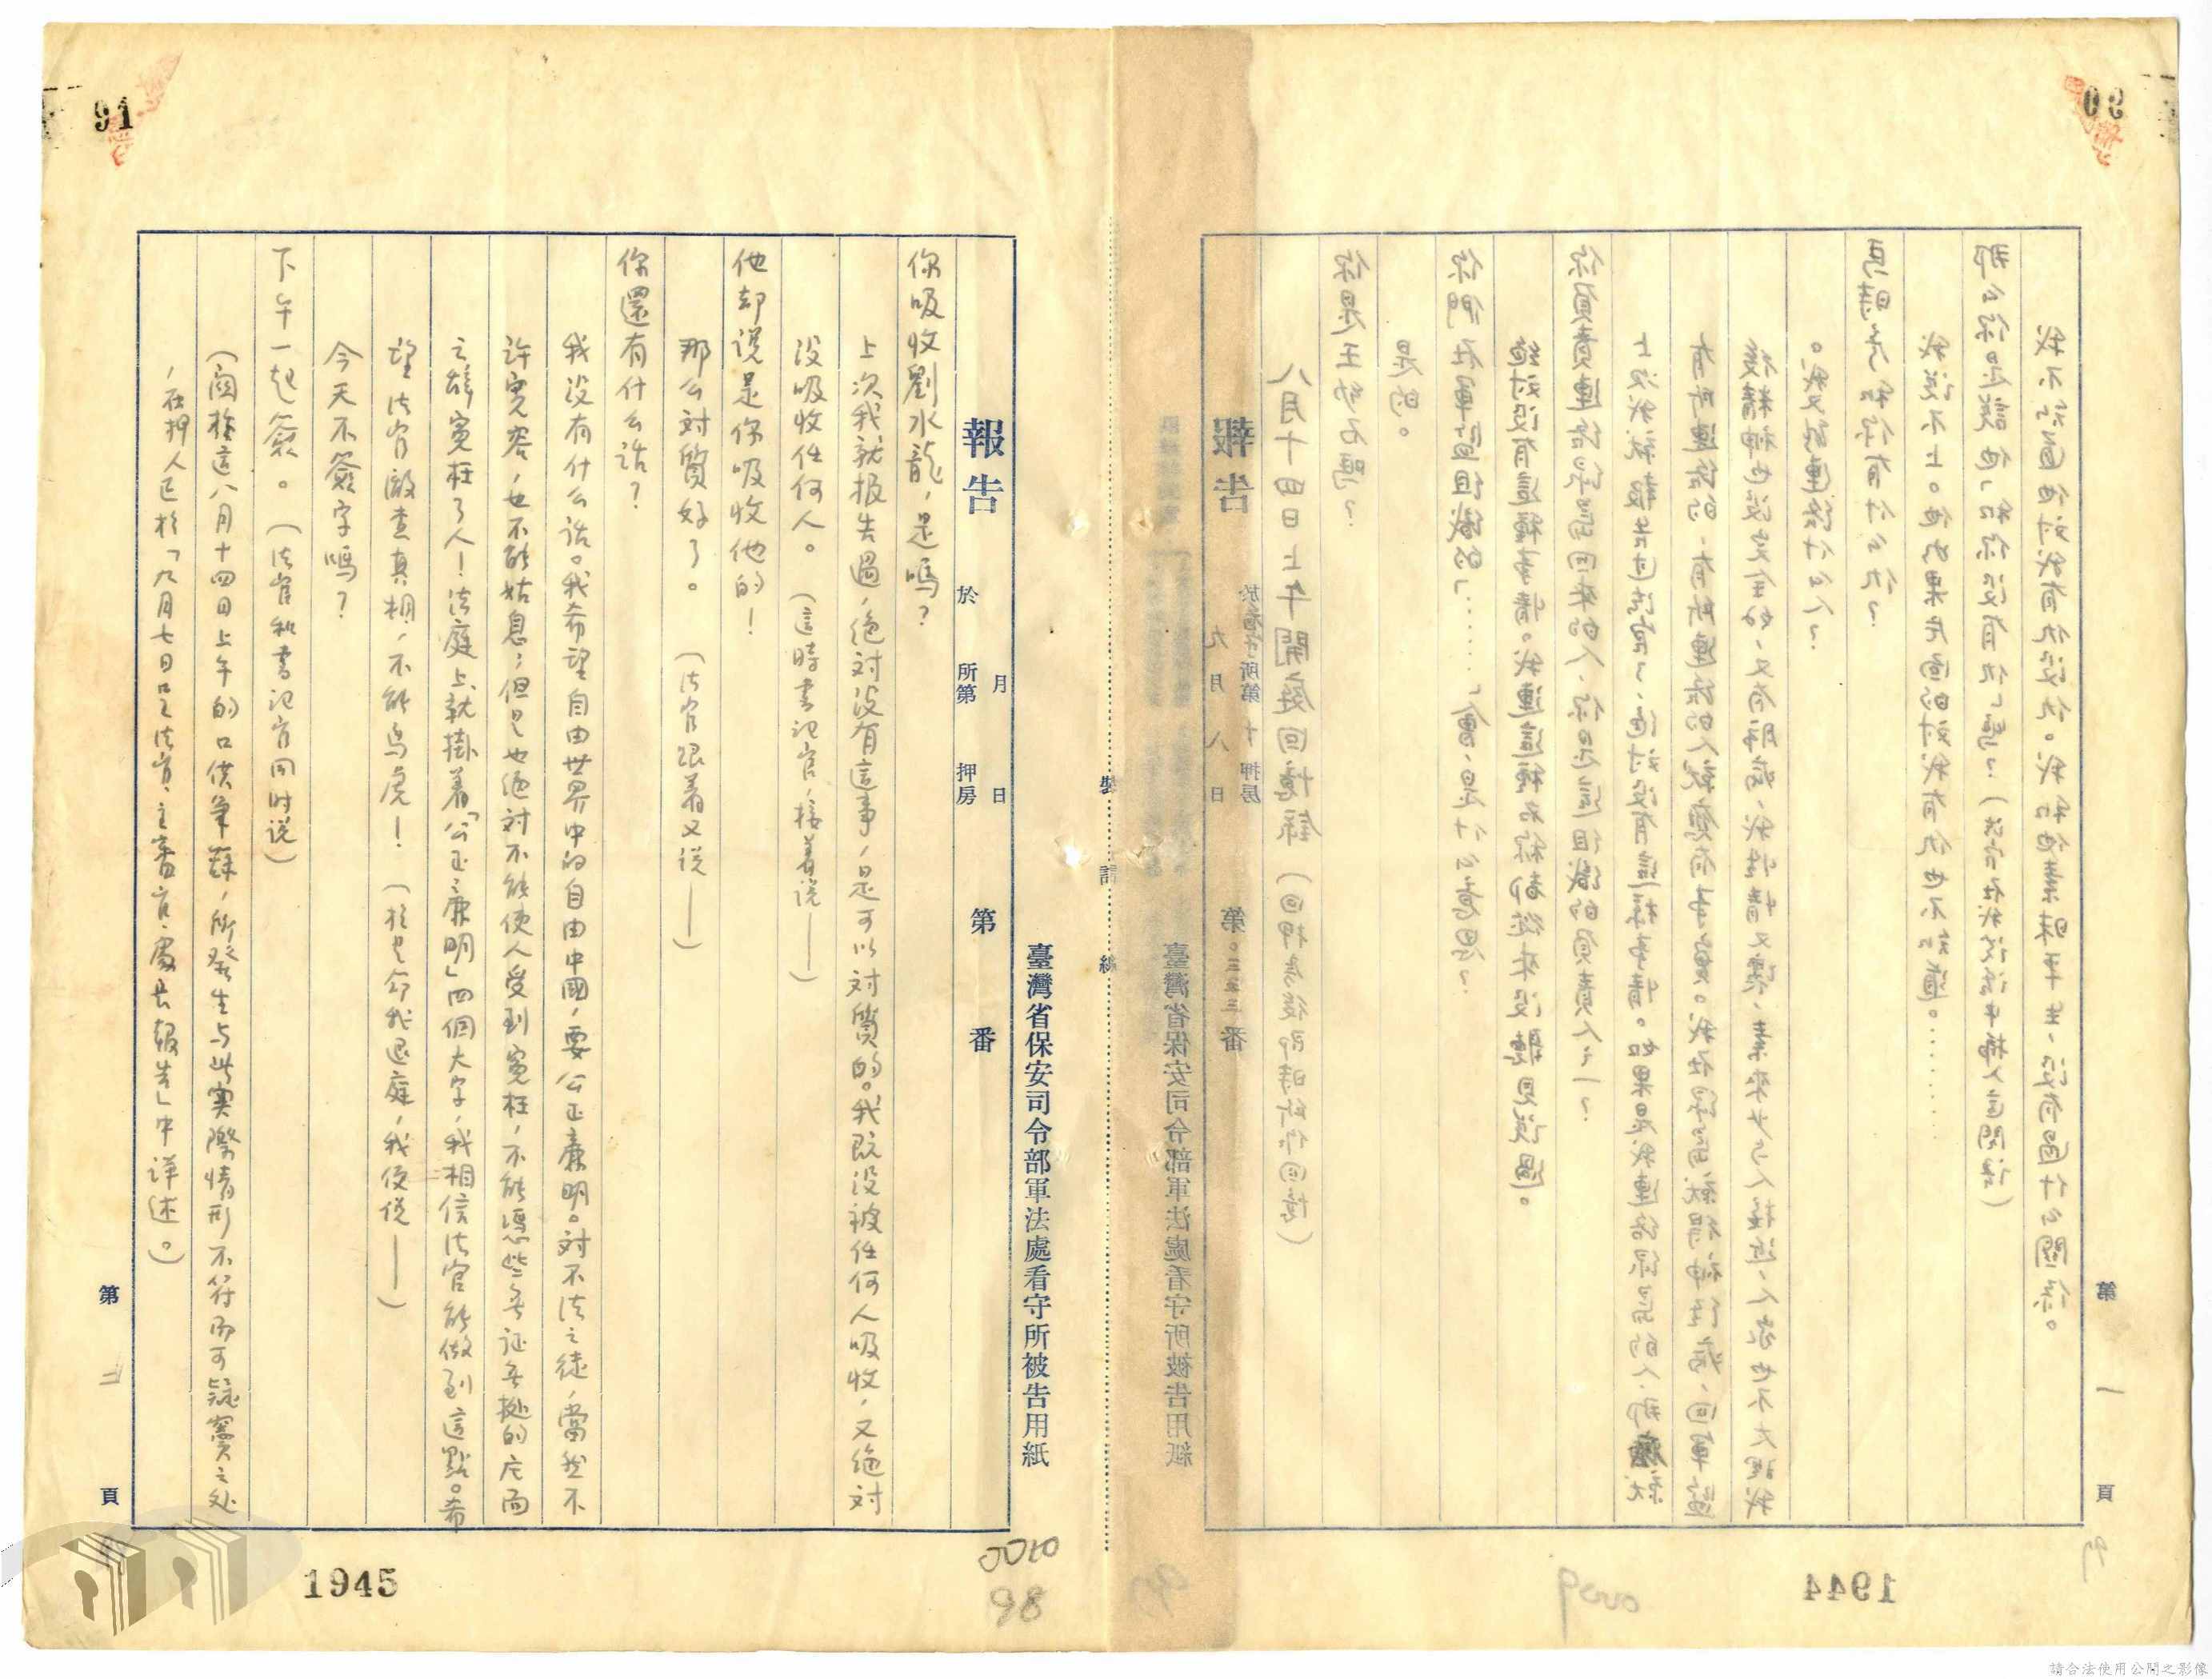 90
臺灣省保安司令部軍法處看守所被告用紙
報告 於看守所第十押房 九月八日 第〇三五三番
八月十四日上午開庭回憶錄（回押房後即時所作回憶）
你是王幼石嗎？
是的。
你們在軍監組織的「……」會，是什么意思？
絕对没有這種事情。我連這種名称都從来没聽見说過。
你負責連络綠島回来的人，你是這组織的負責人之一？
上次我就報告过法官了，绝对没有這样事情。如果是我連络綠島的人，那就
有所連络的，有所連络的人就應有事實。我在綠島就得神经病，回軍監
後精神也没完全好，又有肺病，我性情又壞，素来少与人接近，人家也不大理我
。我又能連络什么人？
馬時彥和你有什么仇？
我说不上。他如果片面的对我有仇也不知道。……
那么你是說他「和你没有仇」嗎？（法官在我说话中插入這問語）
我不知道他对我有仇没仇。我和他素昧平生，没有過什么關係。
第一頁
1944
0009
裝訂線
91
臺灣省保安司令部軍法處看守所被告用紙
報告 於 所第 押房 月 日 第 番
你吸收劉水龍，是嗎？
上次我就报告過，绝对没有這事，是可以对質的。我既没被任何人吸收，又绝对
没吸收任何人。（這時書记官，接着说——）
他却说是你吸收他的！
那么对質好了。（法官跟着又说——）
你還有什么话？
我没有什么话。我希望自由世界中的自由中國，要公正廉明。对不法之徒，當然不
許寬容，也不能姑息；但是也绝对不能使人受到冤枉，不能憑些无证无據的片面
之辞冤枉了人！法庭上，就掛着「公正廉明」四個大字，我相信法官能做到這點。希
望法官澈查真相，不能馬虎！（於是命我退庭，我便说——）
今天不簽字嗎？
下午一起簽。（法官和書记官同时说）
（關於這八月十四日上午的口供筆錄，所發生与此实際情形不符而可疑竇之处
，在押人已於「九月七日呈法官、主審官、處長報告」中详述。）
第二頁
1945
0010
98
請合法使用公開之影像